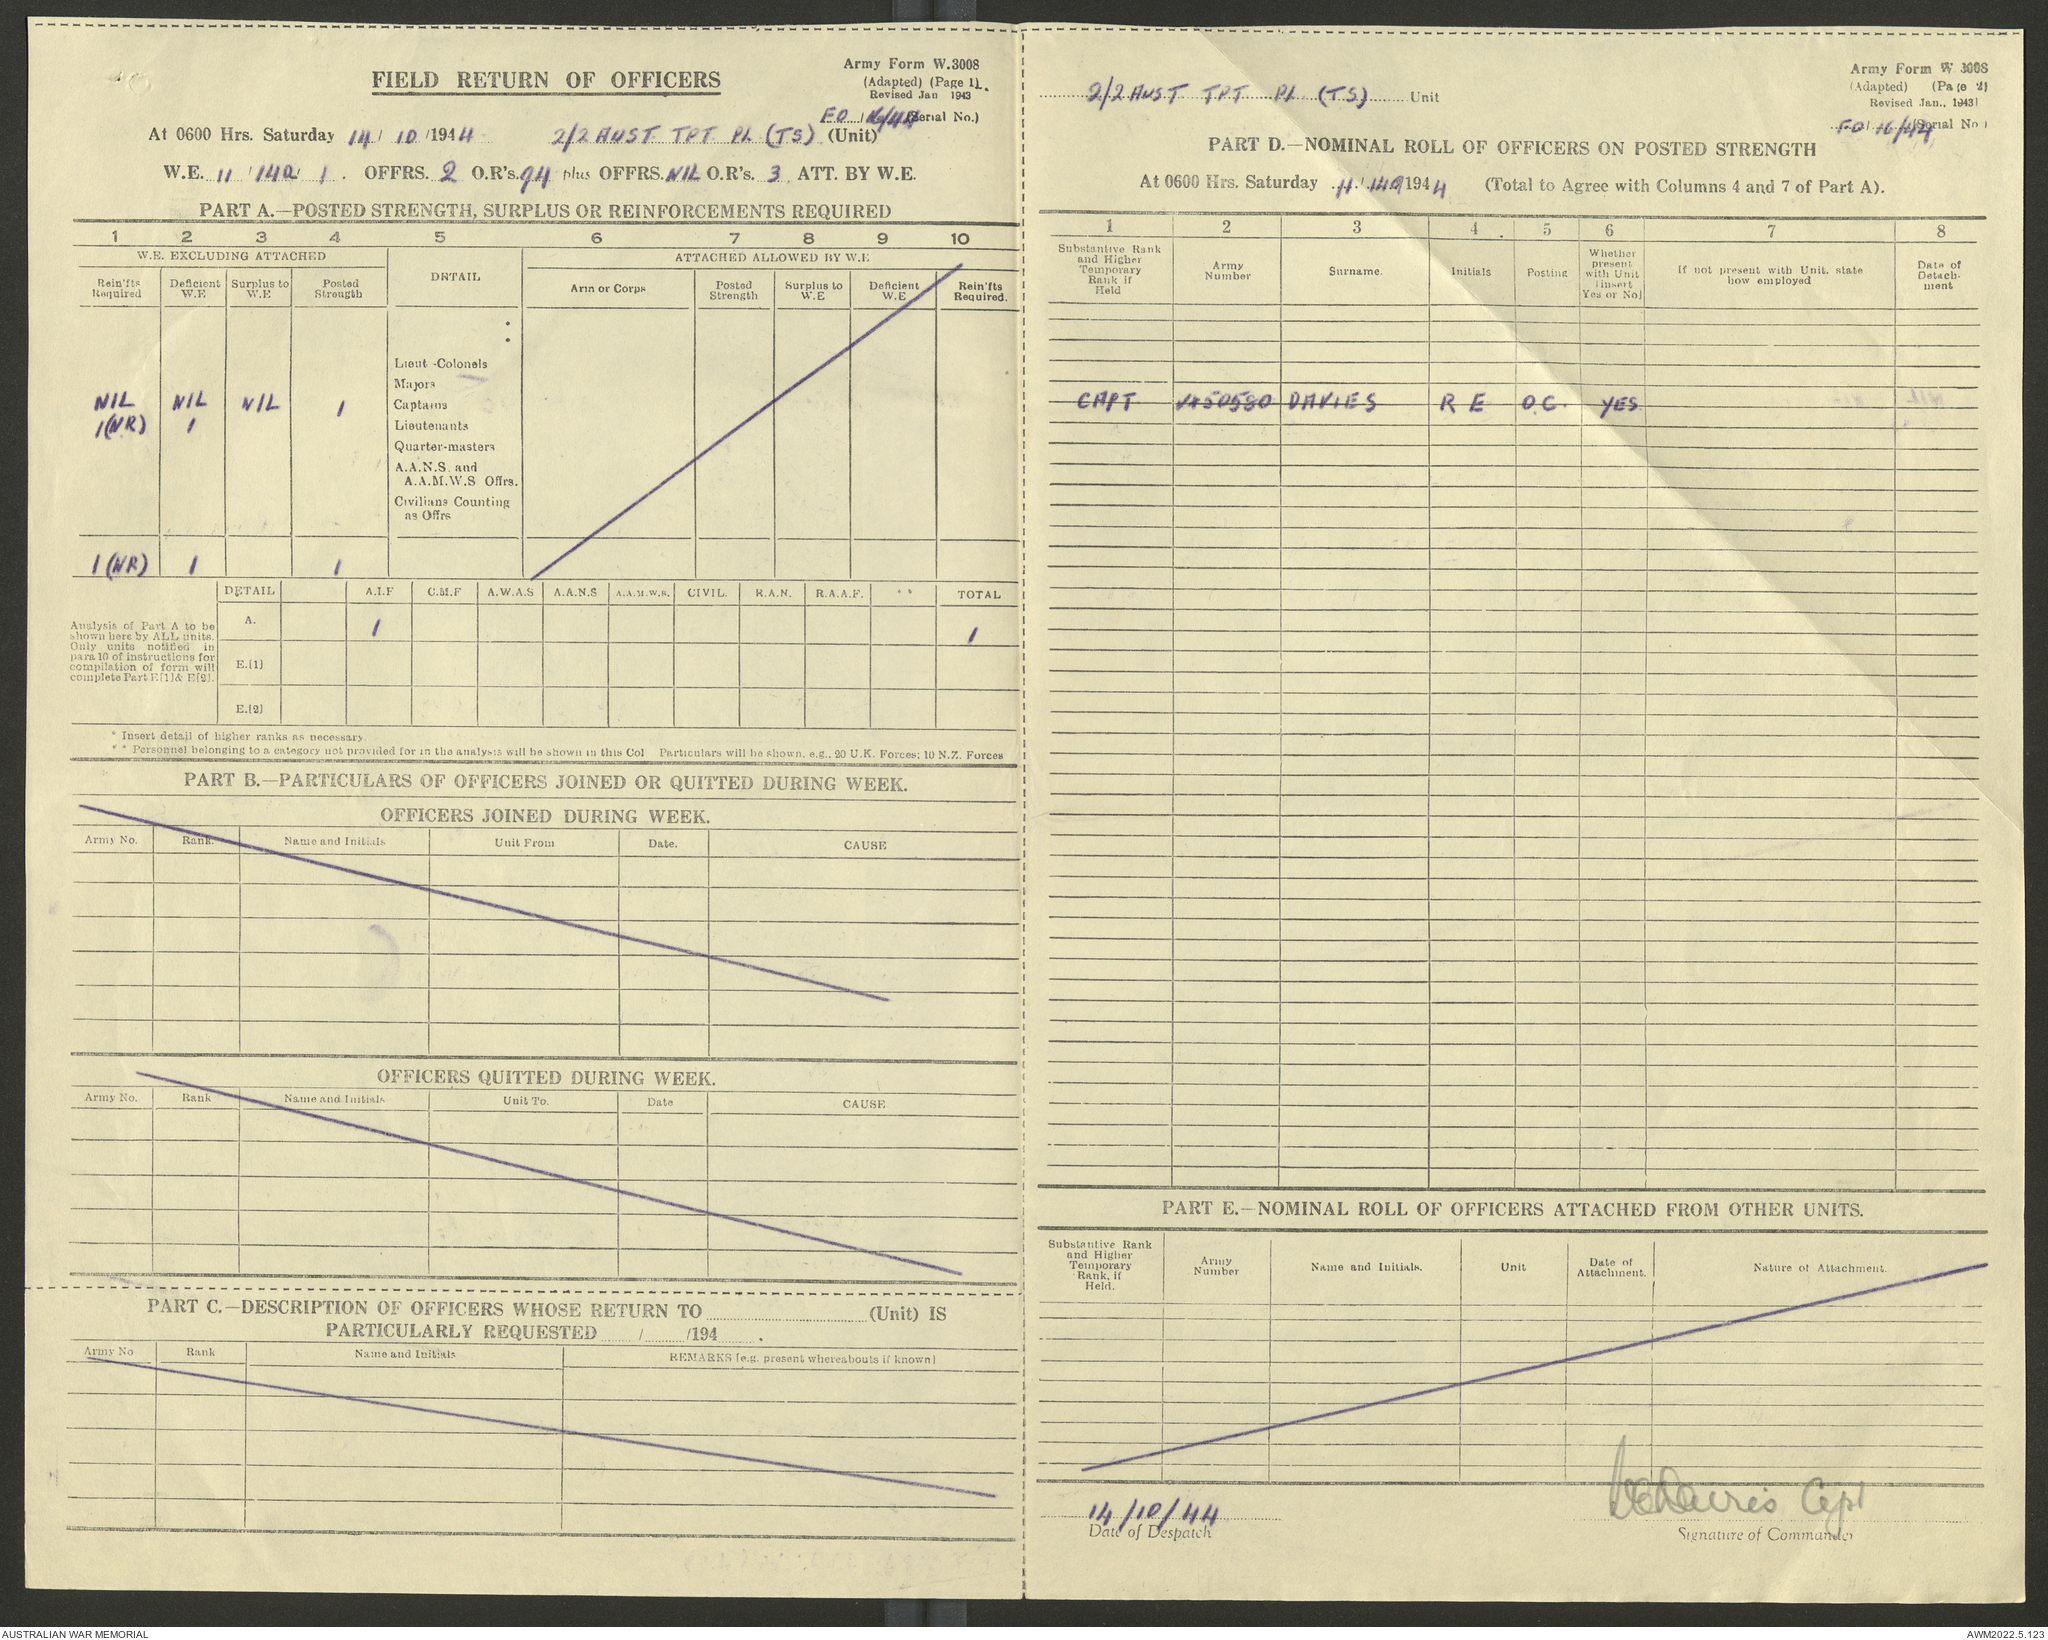 FIELD RETURN OF OFFICERS
Army Form W.3008
(Adapted) (Page 1).
Revised Jan 1943
FO /16/44 (Serial No.)
At 0600 Hrs. Saturday 14/ 10 /1944 2/2 AUST TPT PL (TS) (Unit)
W.E. 11 / 140/ 1 . OFFRS. 2 O.R's. 94 plus OFFRS. NIL O.R's. 3 ATT. BY W.E.
PART A.—POSTED STRENGTH, SURPLUS OR REINFORCEMENTS REQUIRED
1 2 3 4 5 6 7 8 9 10
W.E. EXCLUDING ATTACHED
DETAIL
ATTACHED ALLOWED BY W.E
Rein'fts Required
Deficient W.E
Surplus to W.E
Posted Strength
Arm or Corps
Posted Strength
Surplus to W.E
Deficient W.E
Rein'fts Required.
Lieut -Colonels
Majors
NIL NIL NIL 1 Captains
1(NR) 1 Lieutenants
Quarter-masters
A.A.N.S. and
A.A.M.W.S Offrs.
Civilians Counting
as Offrs
1(NR) 1 1
DETAIL A.I.F C.M.F A.W.A.S A.A.N.S A.A.M.W.S. CIVIL. R.A.N. R.A.A.F. * * TOTAL
Analysis of Part A to be
shown here by ALL units.
Only units notified in
para 10 of instructions for
compilation of form will
complete Part E[1]& E[2].
A. 1 1
E.[1]
E.[2]
* Insert detail of higher ranks as necessary
* * Personnel belonging to a category not provided for in the analysis will be shown in this Col Particulars will be shown. e.g., 20 U.K. Forces; 10 N.Z. Forces
PART B.—PARTICULARS OF OFFICERS JOINED OR QUITTED DURING WEEK.
OFFICERS JOINED DURING WEEK.
Army No. Rank. Name and Initials Unit From Date. CAUSE
OFFICERS QUITTED DURING WEEK.
Army No. Rank Name and Initials Unit To. Date CAUSE
PART C.—DESCRIPTION OF OFFICERS WHOSE RETURN TO (Unit) IS
PARTICULARLY REQUESTED / /194 .
Army No Rank Name and Initials REMARKS [e.g. present whereabouts if known]
2/2 AUST TPT PL (TS) Unit
Army Form W 3008
(Adapted) (Page 2)
Revised Jan., 1943]
FO/ 16/44 (Serial No)
PART D.—NOMINAL ROLL OF OFFICERS ON POSTED STRENGTH
At 0600 Hrs. Saturday 11/ 140/1944 (Total to Agree with Columns 4 and 7 of Part A).
1 2 3 4 . 5 6 7 8
Substantive Rank and Higher Temporary Rank if Held
Army Number
Surname.
Initials
Posting
Whether present with Unit [insert Yes or No]
If not present with Unit, state how employed
Date of Detachment
CAPT VX50580 DAVIES R E O.C. YES
PART E.—NOMINAL ROLL OF OFFICERS ATTACHED FROM OTHER UNITS.
Substantive Rank and Higher Temporary Rank, if Held.
Army Number
Name and Initials.
Unit
Date of Attachment.
Nature of Attachment.
14/10/44
Date of Despatch
REDavies Capt
Signature of Commander
AUSTRALIAN WAR MEMORIAL
AWM2022.5.123